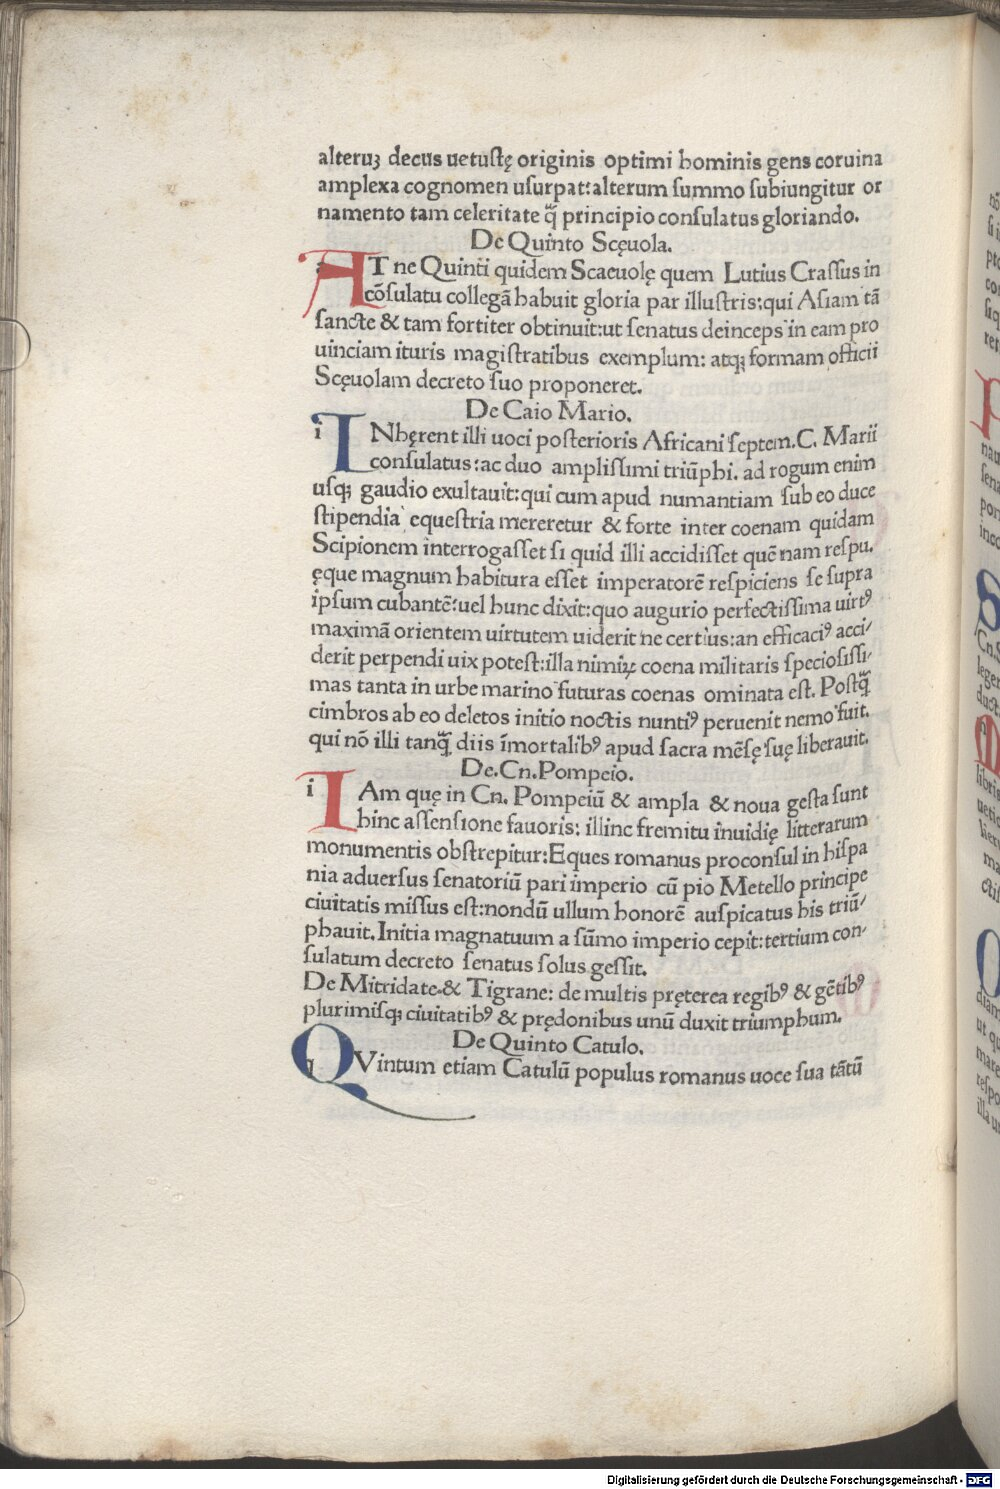 alteruꝫ decus uetuſtę originis optimi hominis gens coruina
amplexa cognomen uſurpat:alterum ſummo ſubiungitur or
namento tam celeritate q̃ principio conſulatus gloriando.
De Quinto Scęuola.
AT ne Quinti quidem Scaeuolę quem Lutius Craſſus in
cōſulatu collegā habuit gloria par illuſtris:qui Aſiam tā
ſancte & tam fortiter obtinuit:ut ſenatus deinceps in eam pro
uinciam ituris magiſtratibus exemplum: atqꝫ formam officii
Scęuolam decreto ſuo proponeret.
De Caio Mario.
INhęrent illi uoci poſterioris Africani ſeptem.C. Marii
conſulatus:ac duo ampliſſimi triūphi. ad rogum enim
uſqꝫ gaudio exultauit:qui cum apud numantiam ſub eo duce
ſtipendia equeſtria mereretur & forte inter coenam quidam
Scipionem interrogaſſet ſi quid illi accidiſſet quē nam reſpu.
ęque magnum habitura eſſet imperatorē reſpiciens ſe ſupra
ipſum cubantē:uel hunc dixit:quo augurio perfectiſſima uirtꝰ
maximā orientem uirtutem uiderit ne certius:an efficaciꝰ acci/
derit perpendi uix poteſt:illa nimiꝝ coena militaris ſpecioſiſſi/
mas tanta in urbe marino futuras coenas ominata eſt. Poſtq̃
cimbros ab eo deletos initio noctis nuntiꝰ peruenit nemo fuit.
qui nō illi tanq̃ diis īmortalibꝰ apud ſacra mēſę ſuę liberauit.
De.Cn.Pompeio.
IAm quę in Cn. Pompeiū & ampla & noua geſta ſunt
hinc aſſenſione fauoris: illinc fremitu inuidię litterarum
monumentis obſtrepitur:Eques romanus proconſul in hiſpa
nia aduerſus ſenatoriū pari imperio cū pio Metello principe
ciuitatis miſſus eſt:nondū ullum honorē auſpicatus bis triū/
phauit.Initia magnatuum a ſūmo imperio cepit:tertium con/
ſulatum decreto ſenatus ſolus geſſit.
De Mitridate & Tigrane: de multis pręterea regibꝰ & gētibꝰ
plurimiſqꝫ ciuitatibꝰ & prędonibus unū duxit triumphum.
De Quinto Catulo.
QVintum etiam Catulū populus romanus uoce ſua tātū
Digitalisierung gefördert durch die Deutsche Forschungsgemeinschaft - DFG